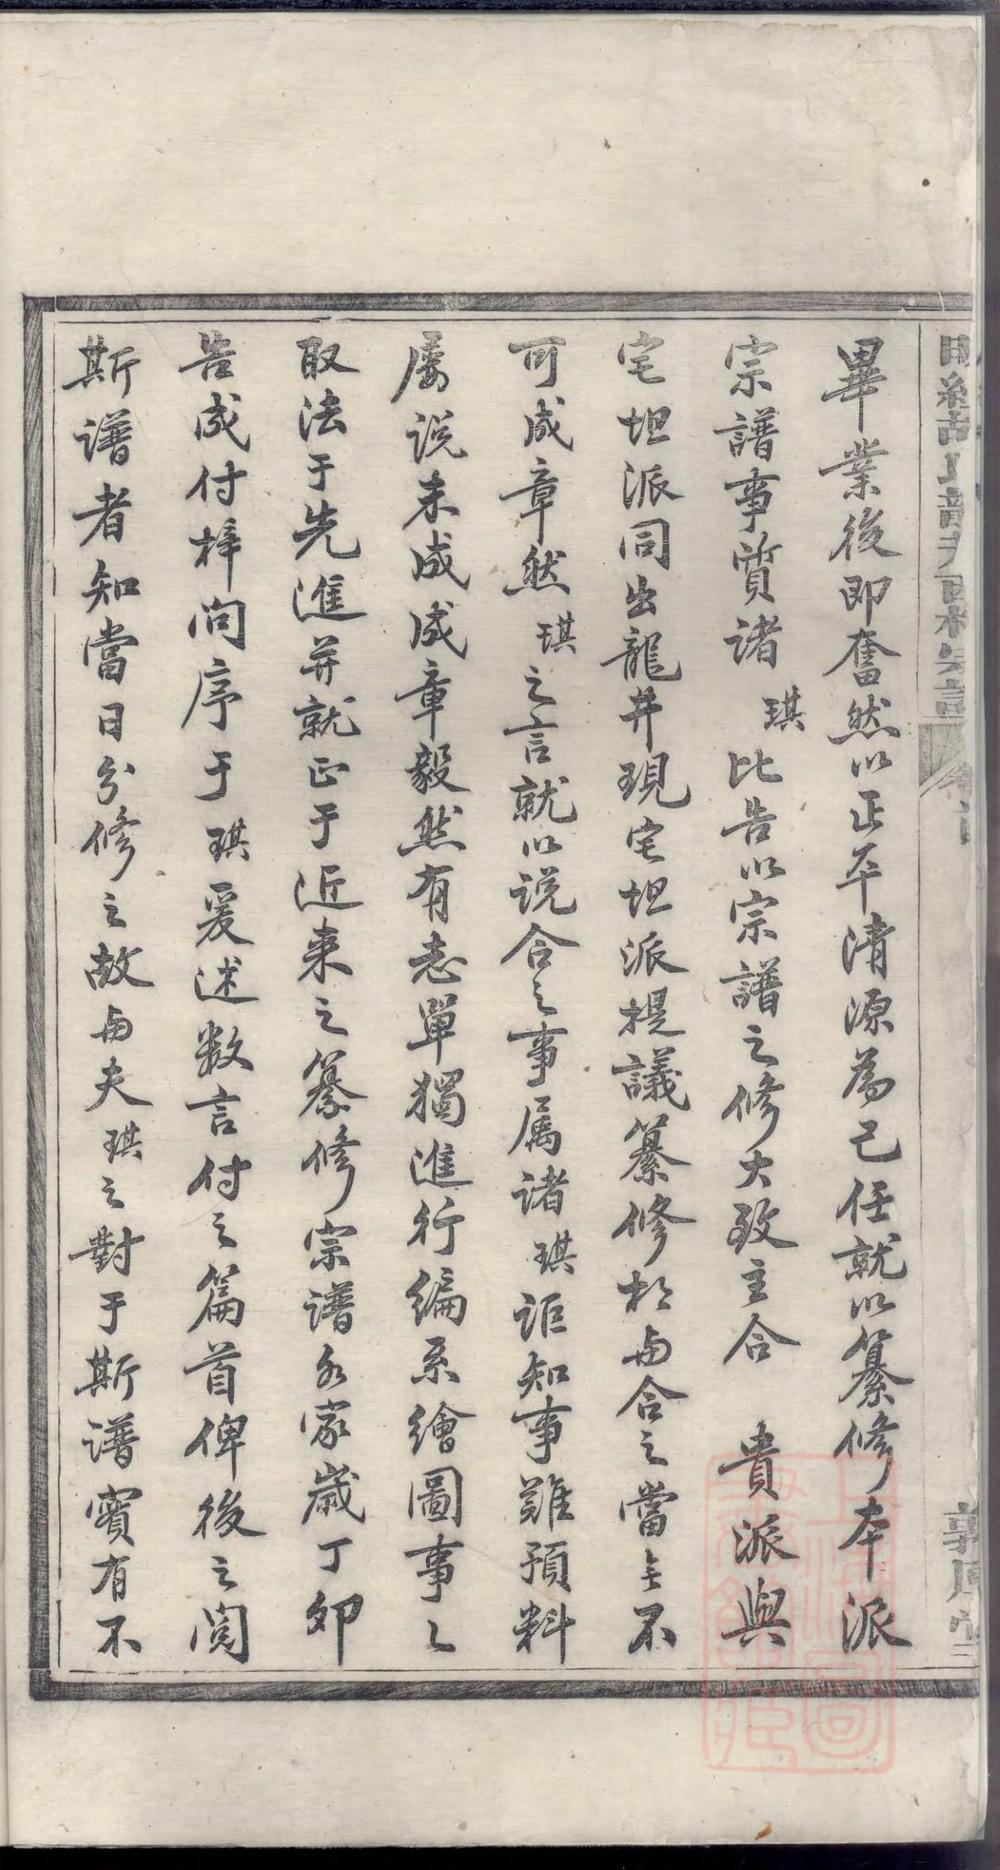 畢業後即奮然以正本清源為己任就以纂修本派
宗譜事質諸琪比告以宗譜之修大致主合 貴派與
宅坦派同出龍井現宅坦派提議纂修於与合之當无不
可成章然琪之言就以説合之事属諸琪詎知事難預料
屡説未成成章毅然有志單獨進行編系繪圖事之
取法于先進并就正于近来之纂修宗譜名家歲丁卯
告成付梓问序于琪爰述数言付之篇首俾後之閲
斯譜者知當日分修之故与夫琪之對于斯譜實有不